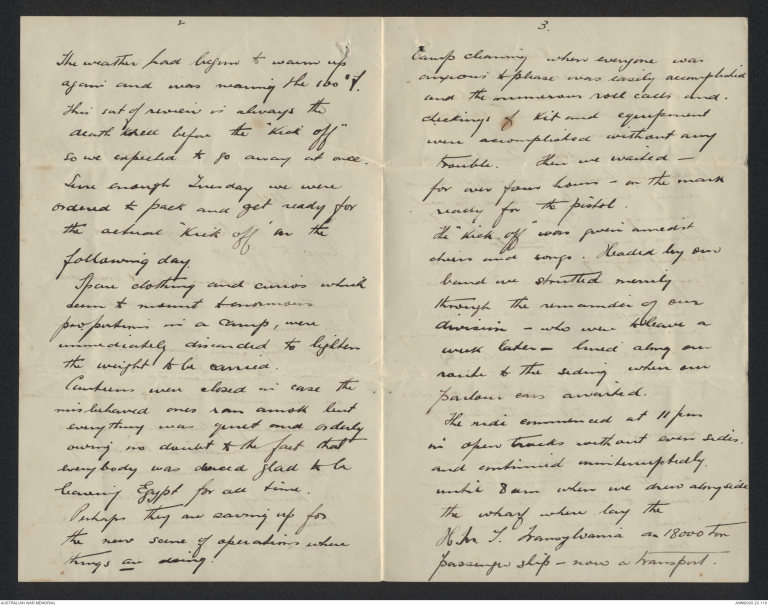 2
The weather had begun to warm up
again and was nearing the 100° F.
This sort of review is always the
death knell before the "Kick off"
so we expected to go away at once.
Sure enough Tuesday we were
ordered to pack and get ready for
the actual "Kick off" on the
following day.
Spare clothing and curios which
seem to mount to enormous
proportions in a camp, were
immediately discarded to lighten
the weight to be carried.
Canteens were closed in case the
misbehaved ones ran amok but
everything was quiet and orderly
owing no doubt to the fact that
everybody was darned glad to be
leaving Egypt for all time.
Perhaps they are saving up for
the new scene of operations where
things are doing.
3.
Camp cleaning when everyone was
anxious to please was easily accomplished
and the numerous roll calls and
checkings of Kit and equipement
were accomplished without any
trouble. Then we waited –
for over four hours – on the mark
ready for the pistol.
The "Kick off" was given amidst
cheers and songs. Headed by our
band we strutted merrily
through the remainder of our
division – who were to leave a
week later – lined along our
route to the siding when our
parlour cars awaited.
The ride commenced at 11 pm
in open trucks without even sides.
and continued uninterruptedly.
until 8 am when we drew alongside
the wharf where lay the
H.M.T. Transylvania an 18000 ton
passenger ship – now a transport.
AUSTRALIAN WAR MEMORIAL